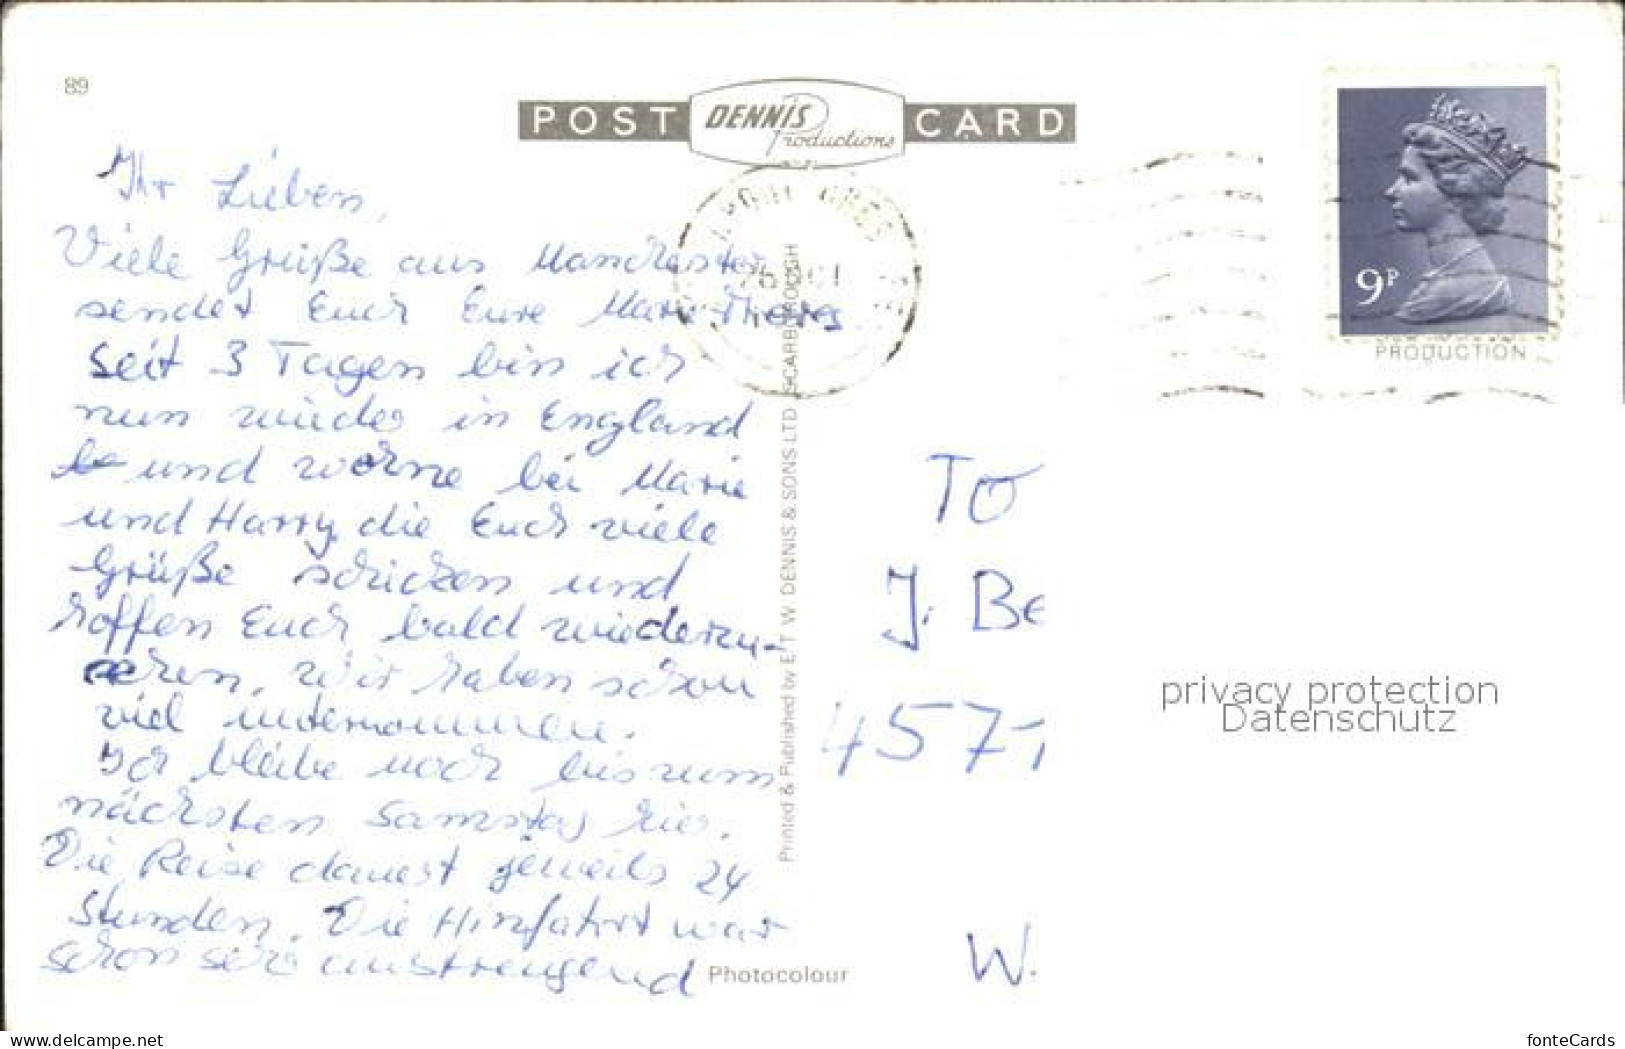 89
POST DENNIS Productions CARD
Ihr Lieben,
Viele Grüße aus Manchester
sendet Euch Eure Marie-Theres
Seit 3 Tagen bin ich
nun wieder in England
und wohne bei Marie
und Harry, die Euch viele
Grüße schicken und
hoffen Euch bald wiederzu-
sehen. Wir haben schon
viel unternommen.
Ich bleibe noch bis zum
nächsten Samstag hier.
Die Reise dauert jeweils 24
Stunden. Die Hinfahrt war
schon sehr anstrengend
Printed & Published by E. T. W. DENNIS & SONS LTD SCARBOROUGH
Photocolour
9P
PRODUCTION
To
J. Be
457
W.
privacy protection
Datenschutz
www.delcampe.net
fonteCards